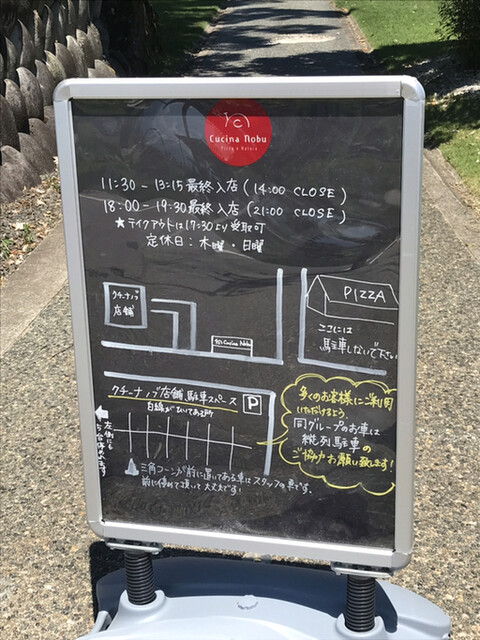 Cucina Nobu
Pizza e Natura
11:30 - 13:15 最終入店 (14:00 CLOSE)
18:00 - 19:30 最終入店 (21:00 CLOSE)
★テイクアウトは17:30より受取可
定休日：木曜・日曜
クチーナノブ
店舗
Cucina Nobu
PIZZA
ここには
駐車しないで下さい
クチーナノブ店舗駐車スペース
白線がひいてある所
P
左側にも
5台停めれます
多くのお客様にご利用
いただけるよう、
同グループのお車は
縦列駐車の
ご協力お願い致します!
三角コーンが前に置いてある車はスタッフの車です。
前に停めて頂いて大丈夫です!